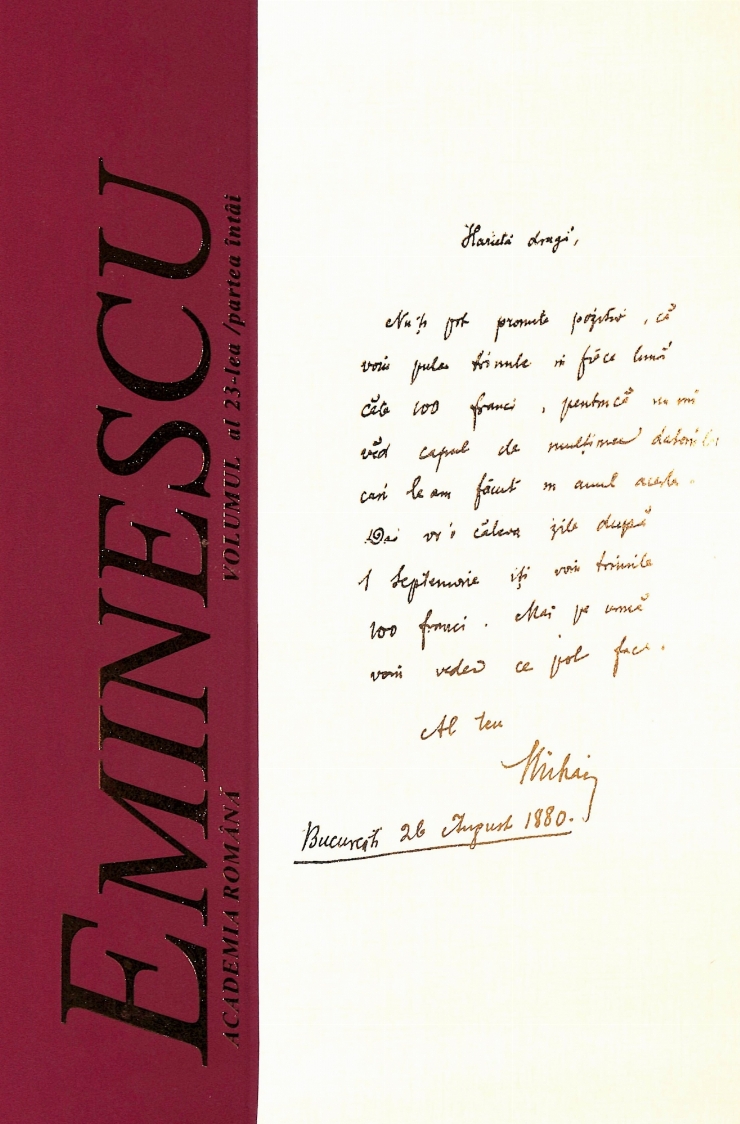 EMINESCU
VOLUMUL al 23-lea /partea întâi
ACADEMIA ROMÂNĂ
Harieta dragă,
Nu'ți pot promite pozitiv, că
voiu putea trimite în fiece lună
câte 100 franci, pentrucă nu'mi
văd capul de mulțimea datoriilor
cari le am făcut în anul acesta.
Dar vr'o câteva zile după
1 Septemvrie iți voiu trimite
100 franci. Mai pe urmă
voiu vedea ce pot face.
Al teu
Mihai
București 26 August 1880.